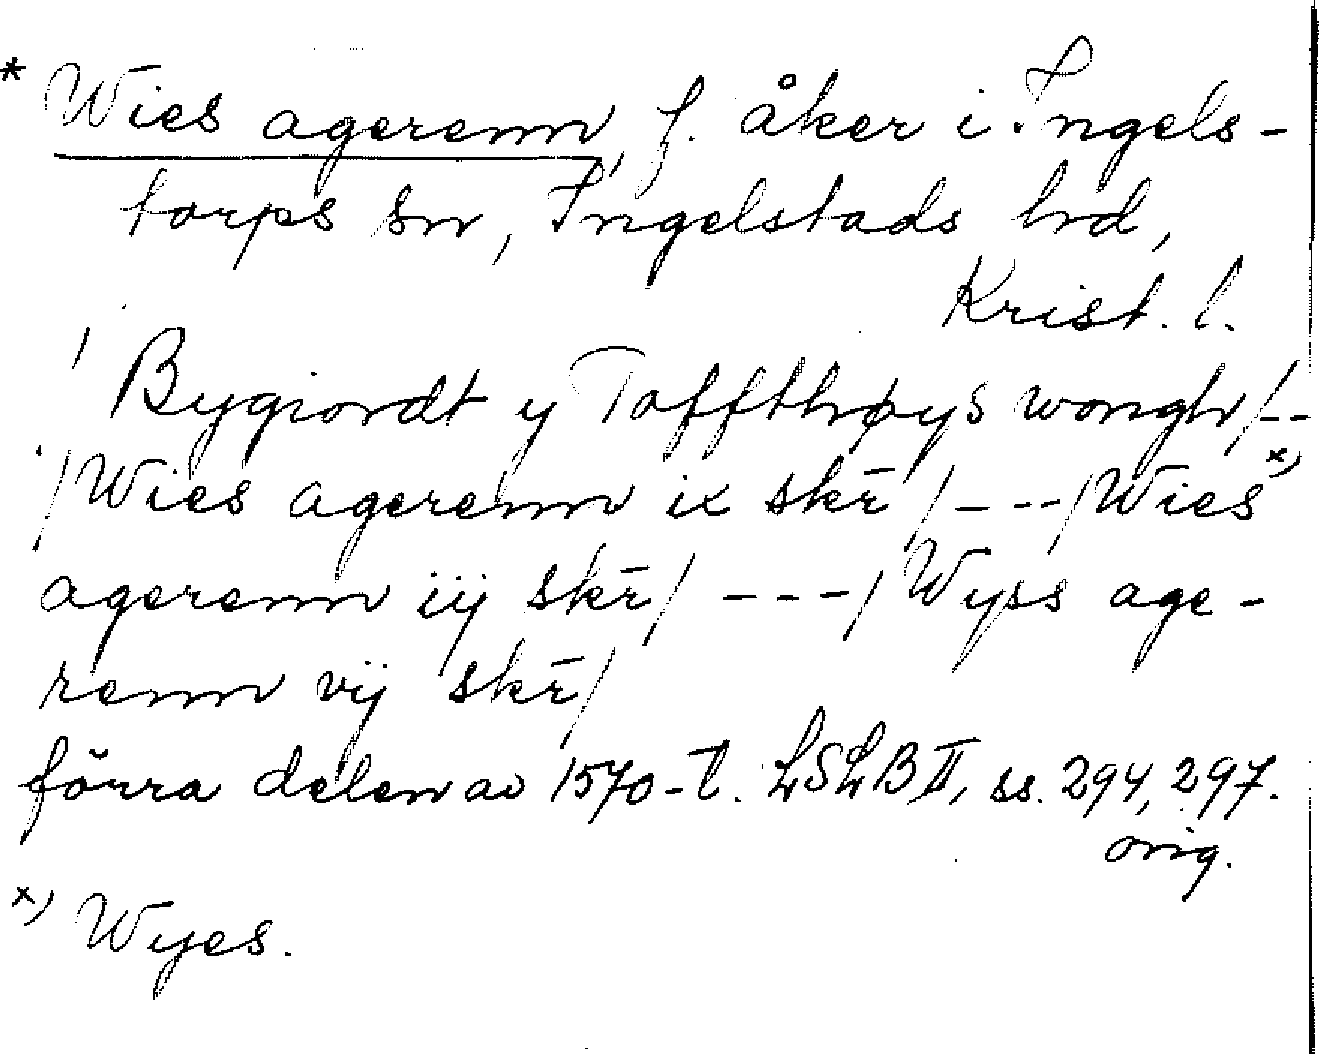 * Wies agerenn, f. åker i Ingels-
torps sn, Ingelstads hd,
Krist. l.
/ Bygiordt y Toffthøys wongh/--
-/Wies agerenn ix skr̄/---/Wies x)
agerenn iij skr̄/ ---/Wyss age-
renn vij skr̄/
förra delen av 1570-t. LSLB II, ss. 294, 297.
orig.
x) Wyes.